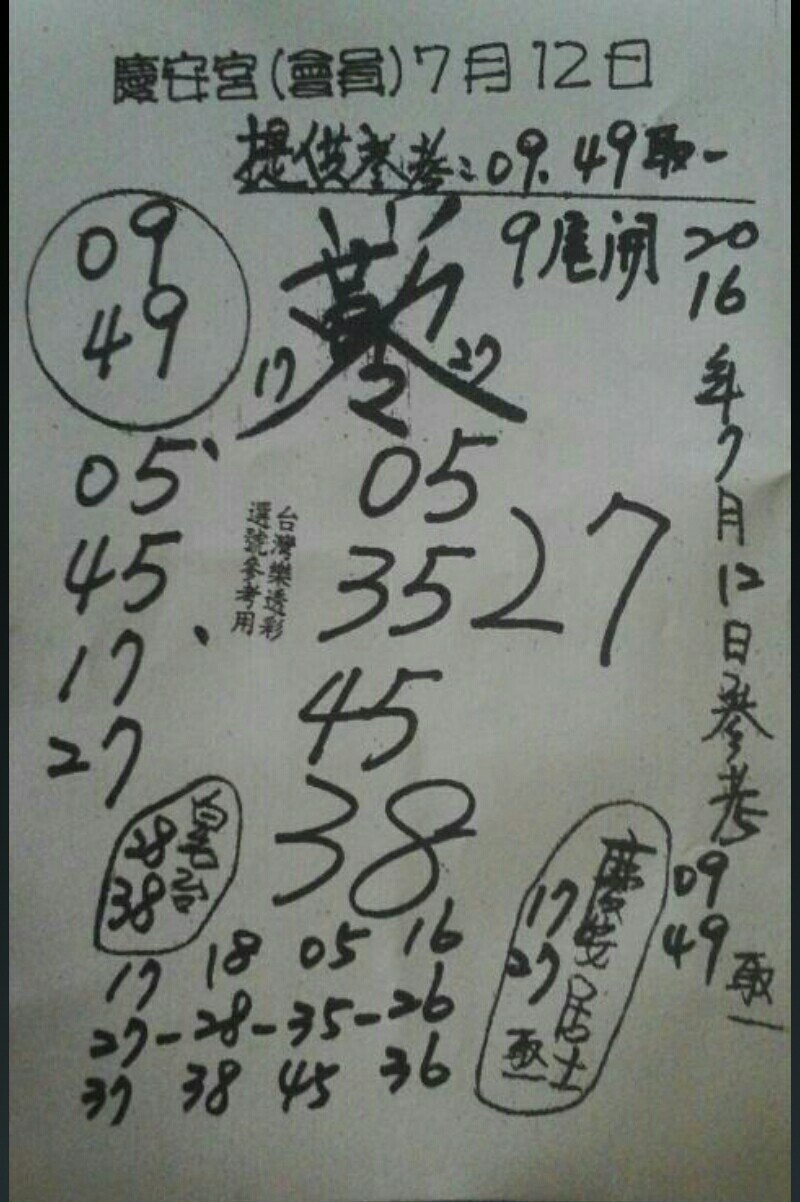 慶安宮(會員)7月12日
提供參考:09.49取一
9尾開
2016年7月12日參考
09
49
取一
09
49
17
27
05
45
17
27
05
35
45
38
27
台灣樂透彩
選號參考用
28
38
慶安居士
17
27
取一
17 18 05 16
27-28-35-26
37 38 45 36